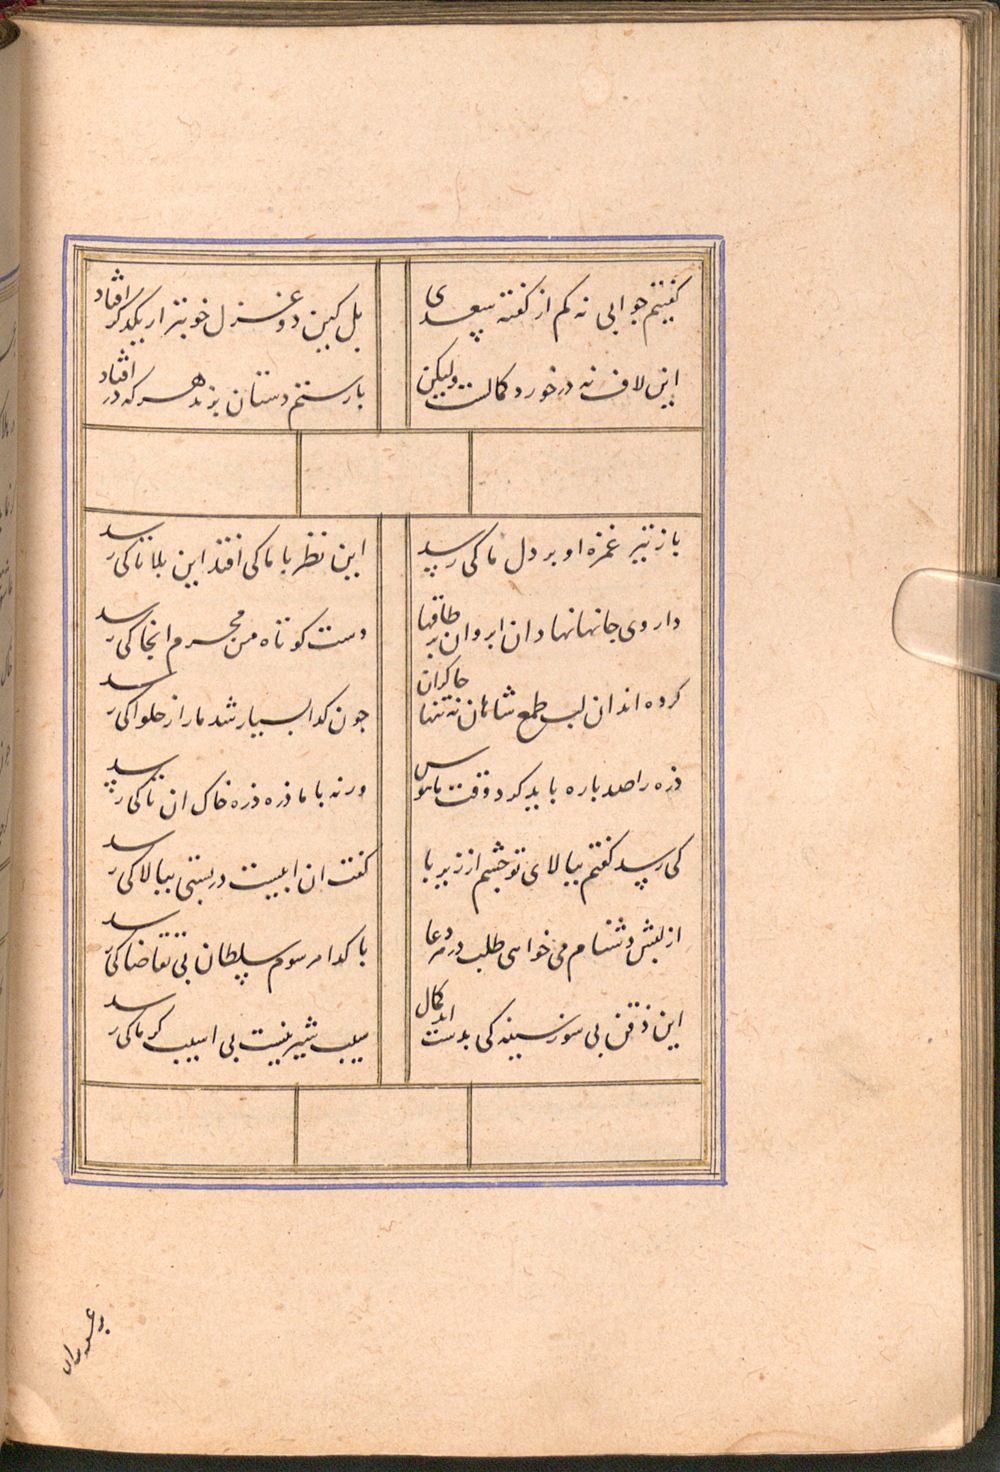 کفتیم جوابی نه کم از کفته سعدی
بل کین دو غزل خوبتر از یکدکر افتاد
این لاف نه درخورد کمالست ولیکن
با رستم دستان بزند هر که در افتاد
باز تیر غمزه او بر دل ما کی رسد
این نظر با ما کی افتد این بلا تا کی رسد
داروی جانها نهاد ان ابروان بر طاقها
دست کوتاه من محرم انجا کی رسد
کرده اند ان لب طمع شاهان نه تنها چاکران
چون کدا بسیار شد ما را ز حلوا کی رسد
ذره را صد باره باید کرد وقت بابوس
ورنه با ما ذره ذره خاک ان تا کی رسد
کی رسد کفتم ببالای تو چشم از زیر با
کفت ان ابیست در بستی ببالا کی رسد
از لبش دشنام می خواهی طلب در دعا
با کدا مرسوم سلطان بی تقاضا کی رسد
این ذقن بی سوز سینه کی بدست اید کمال
سیب شیرینست بی اسیب کرما کی رسد